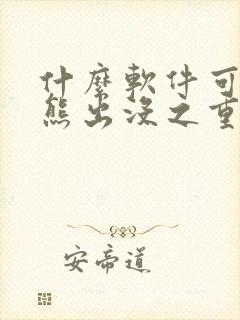 什麼軟件可
熊出沒之重
安帝道